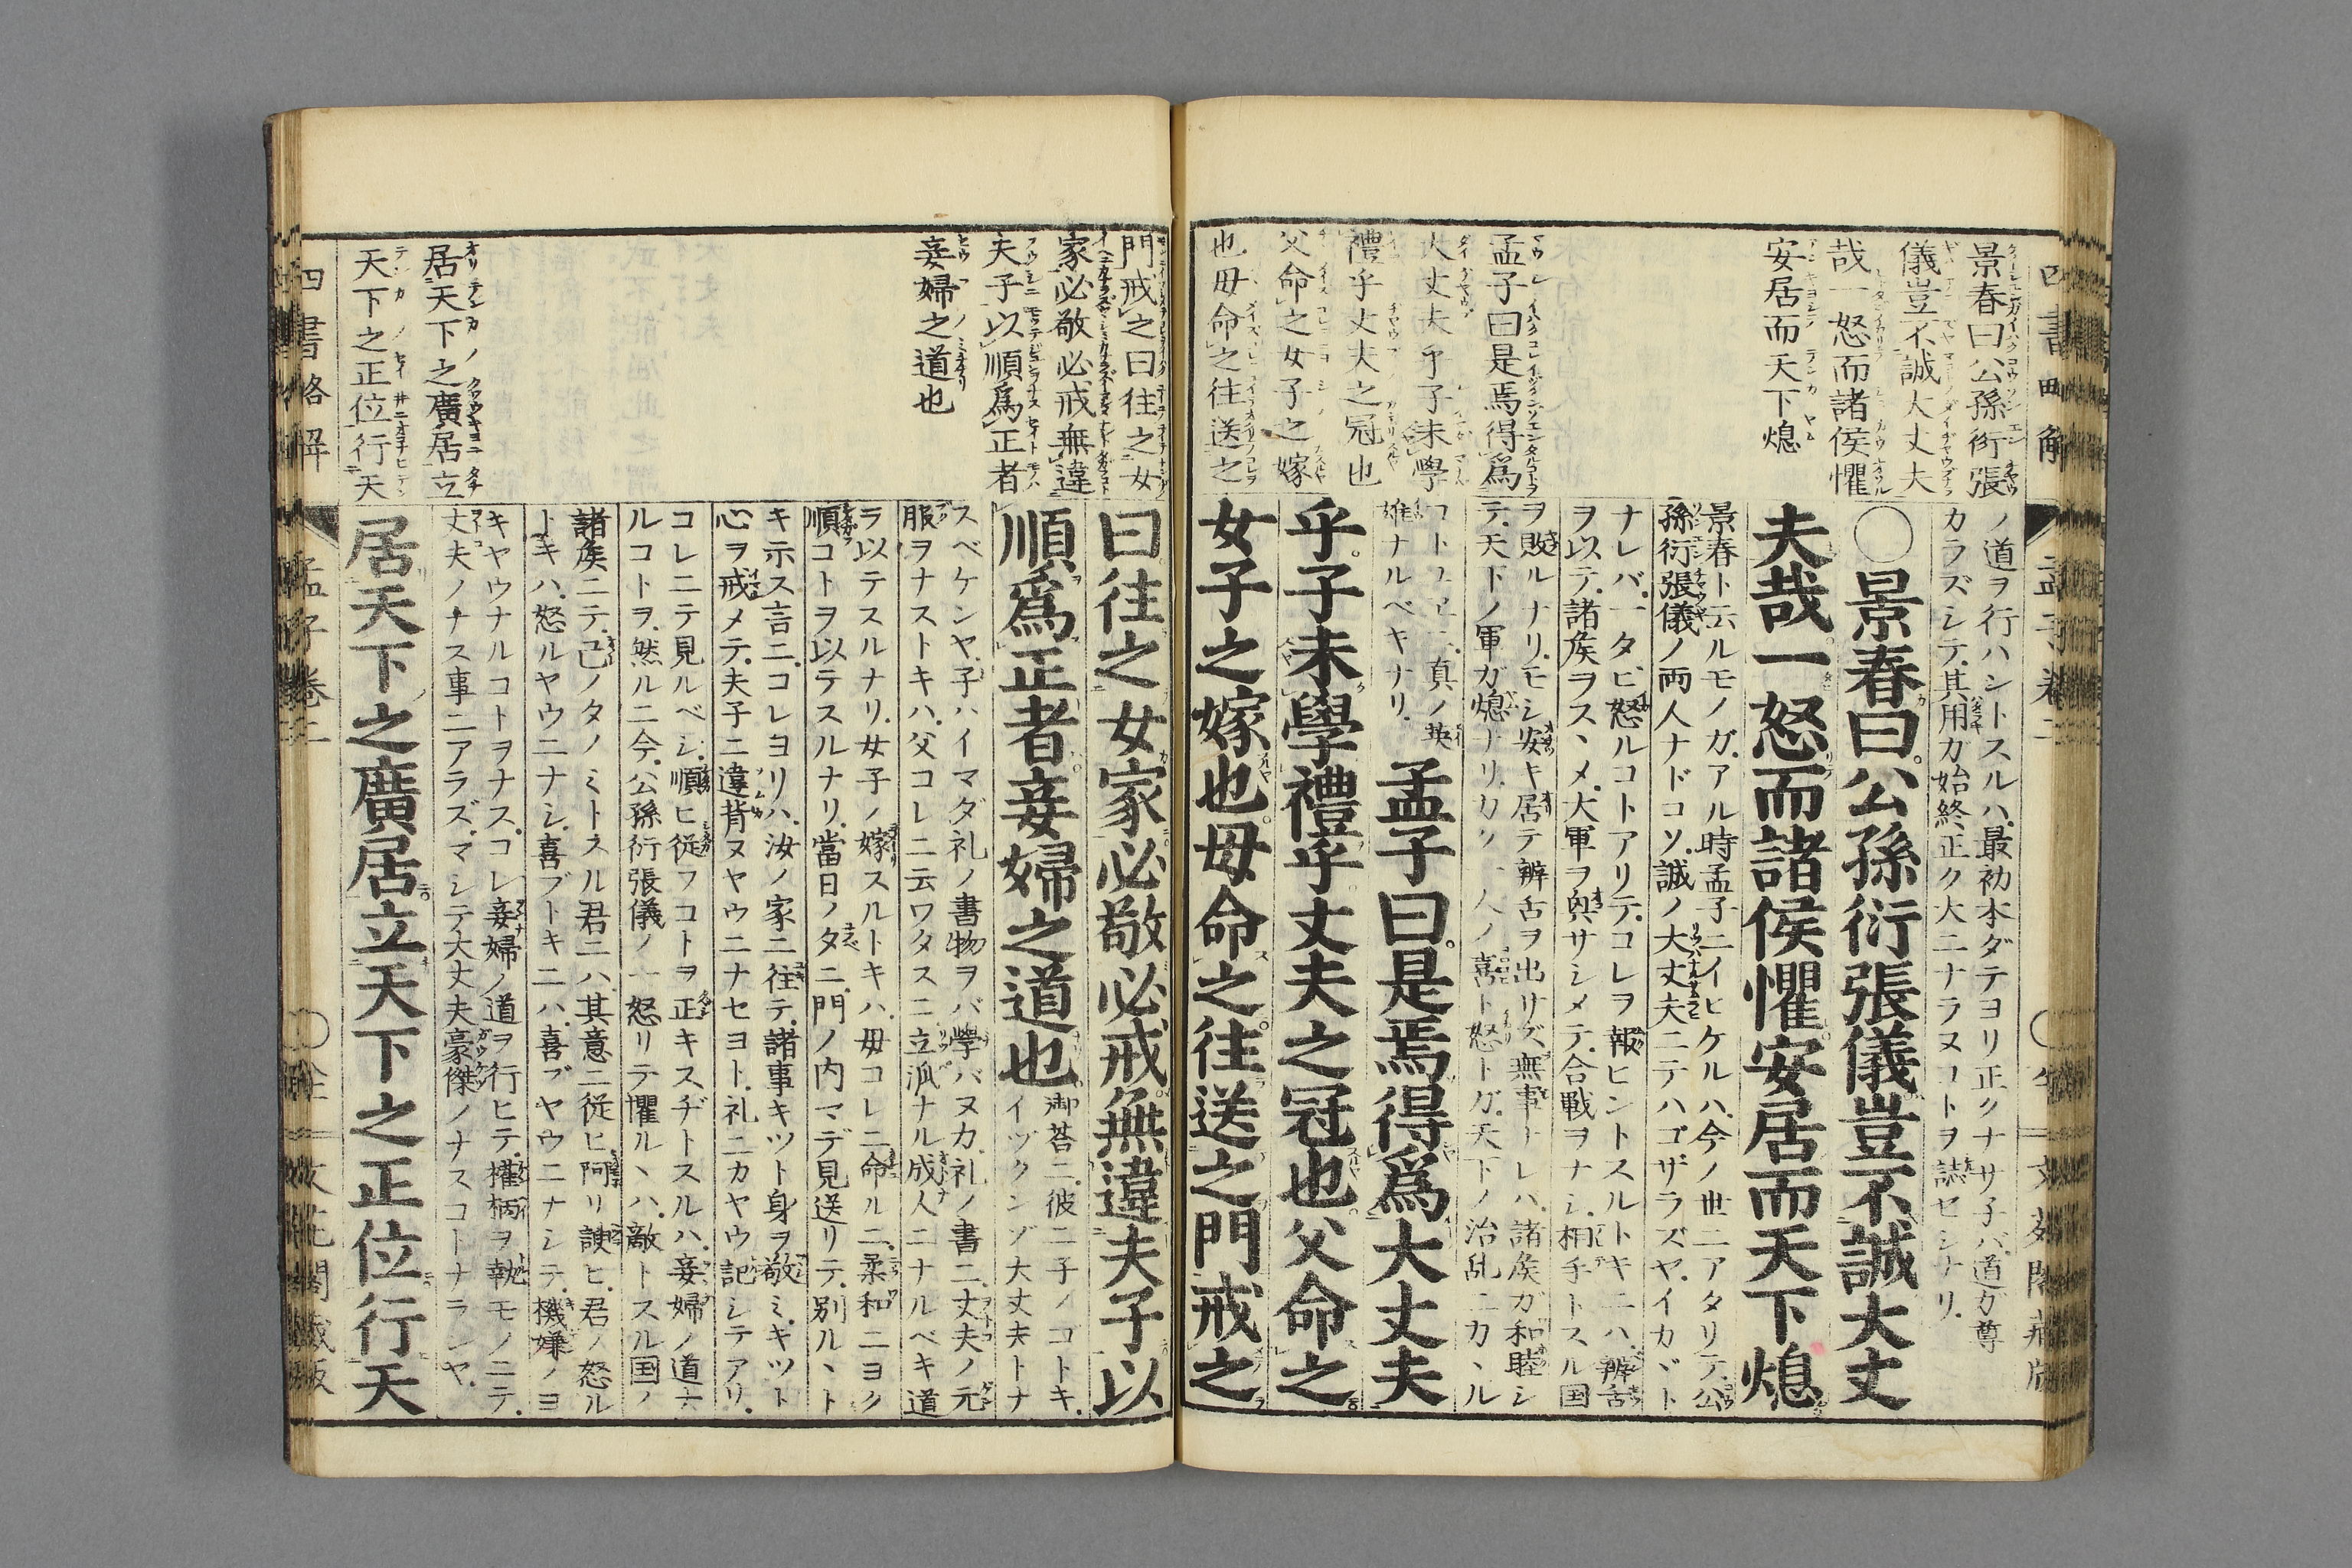 景春曰公孫衍張
儀豈不誠大丈夫
哉一怒而諸侯懼
安居而天下熄
孟子曰是焉得為
大丈夫乎子未學
禮乎丈夫之冠也
父命之女子之嫁
也母命之往送之
ノ道ヲ行ハントスルハ最初本ダテヨリ正クナサ子バ道ガ尊
カラズシテ其用ガ始終正ク大ニナラヌコトヲ
〇景春曰公孫衍張儀豈不誠大丈
夫哉一怒而諸侯懼安居而天下熄
景春ト云ルモノガアル時孟子ニイヒケルハ今ノ世ニアタリテ公
孫衍張儀ノ両人ナドコソ誠ノ大丈夫ニテハゴザラズヤイカヾト
ナレバ一タビ怒ルコトアリテコレヲ報ヒントスルトキニハ辨舌
ヲ以テ諸矦ヲスヽメ大軍ヲ輿サシメテ合戦ヲナシ相手トスル国
ヲ敗ルナリモシ安キ居テ辨舌ヲ出サズ無事ナレハ諸矦ガ和睦シ
テ天下ノ軍ガ熄ナリカク一人ノ喜ト怒トガ天下ノ治乱ニカヽル
コトユエニ真ノ英
雄ナルベキナリ
孟子曰是焉得爲大丈夫
乎子未學禮乎丈夫之冠也父命之
女子之嫁也母命之往送之門戒之
四書略解 孟子卷二
門戒之曰往之女
家必敬必戒無違
夫子以順爲正者
妾婦之道也
居天下之廣居立
天下之正位行天
曰往之女家必敬必戒無違夫子以
順爲正者妾婦之道也
御荅ニ彼二子ノゴトキ
イヅクンゾ大丈夫トナ
スベケンヤ子ハイマダ礼ノ書物ヲバ學バヌカ礼ノ書ニ丈夫ノ元
服ヲナストキハ父コレニ云ワタスニ立派ナル成人ニナルベキ道
ラ以テスルナリ女子ノ嫁スルトキハ母コレニ命ルニ柔和ニヨク
順コトヲ以テスルナリ當日ノタニ門ノ内マデ見送リテ別ルヽト
キ示ス言ニコレヨリハ汝ノ家ニ往テ諸事キツト身ヲ敬ミキツト
心ヲ戒メテ夫子ニ違背ヌヤウニナセヨト礼ニカヤウ記シテアリ
コレニテ見ルベシ順ヒ従フコトヲ正キスヂトスルハ妾婦ノ道ナ
ルコトヲ然ルニ今公孫衍張儀ノ一怒リテ懼ルヽハ敵トスル国ノ
諸矦ニテ己ノタノミトスル君ニハ其意ニ従ヒ阿リ諛ヒ君ノ怒ル
トキハ怒ルヤウニナシ喜ブトキニハ喜ブヤウニナシテ機嫌ノヨ
キヤウナルコトヲナスコレ妾婦ノ道ヲ行ヒテ權柄ヲ執モノニテ
丈夫ノナス事ニアラズマシテ大丈夫豪傑ノナスコトナランヤ
居天下之廣居立天下之正位行天
四書略解 孟子卷二